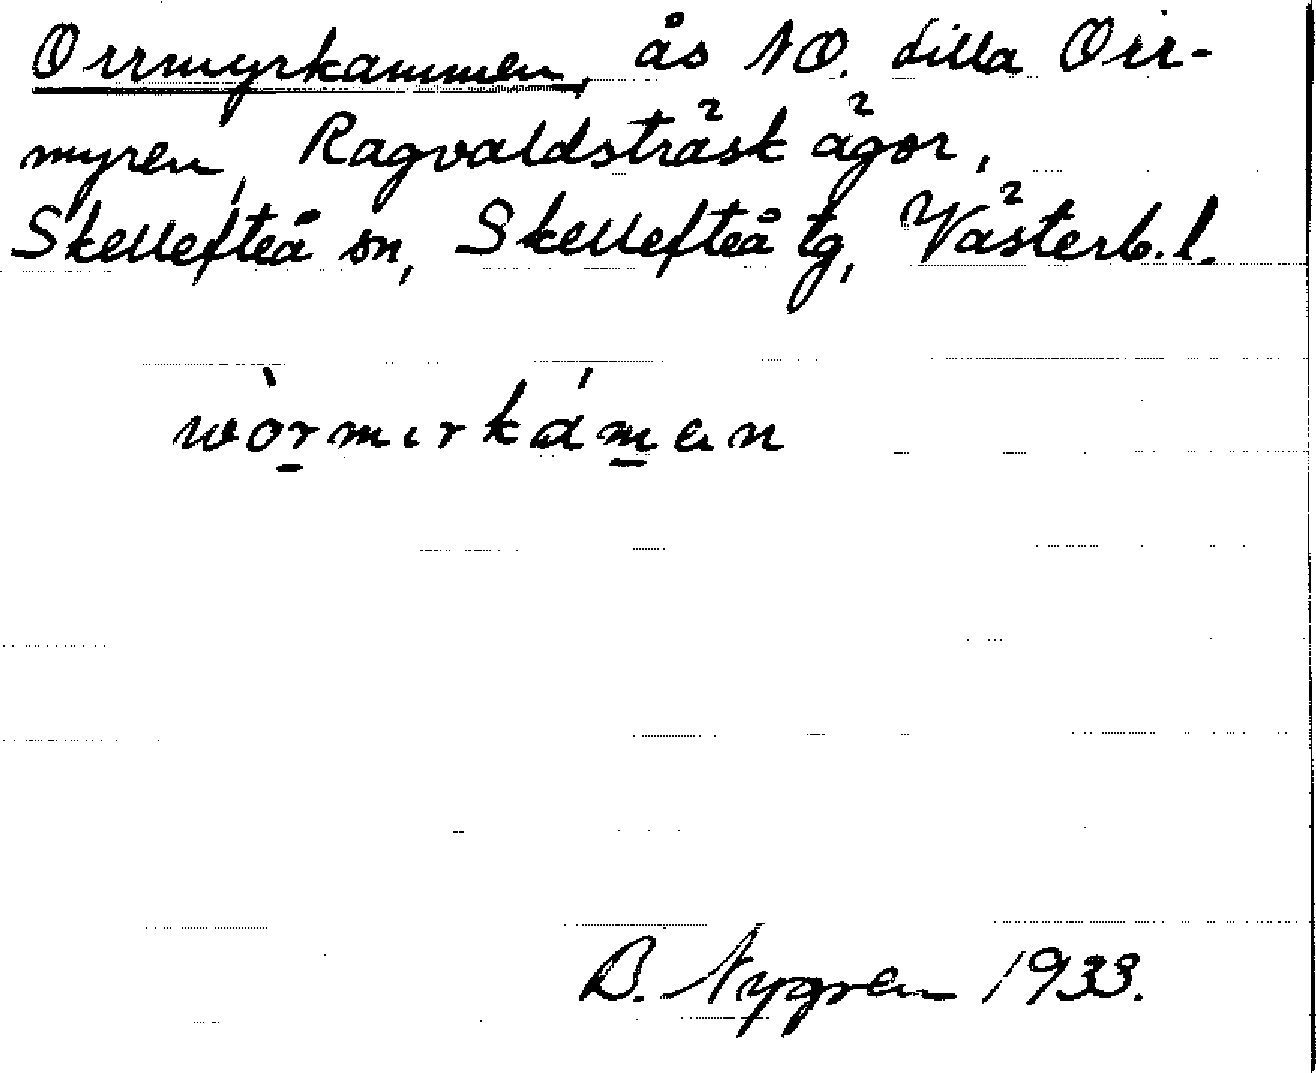 Orrmyrkammen, ås NO. Lilla Orr-
myren, Ragvaldsträsk ägor,
Skellefteå sn, Skellefteå tg, Västerb. l.
wòrmırkámen
B. Nygren 1933.